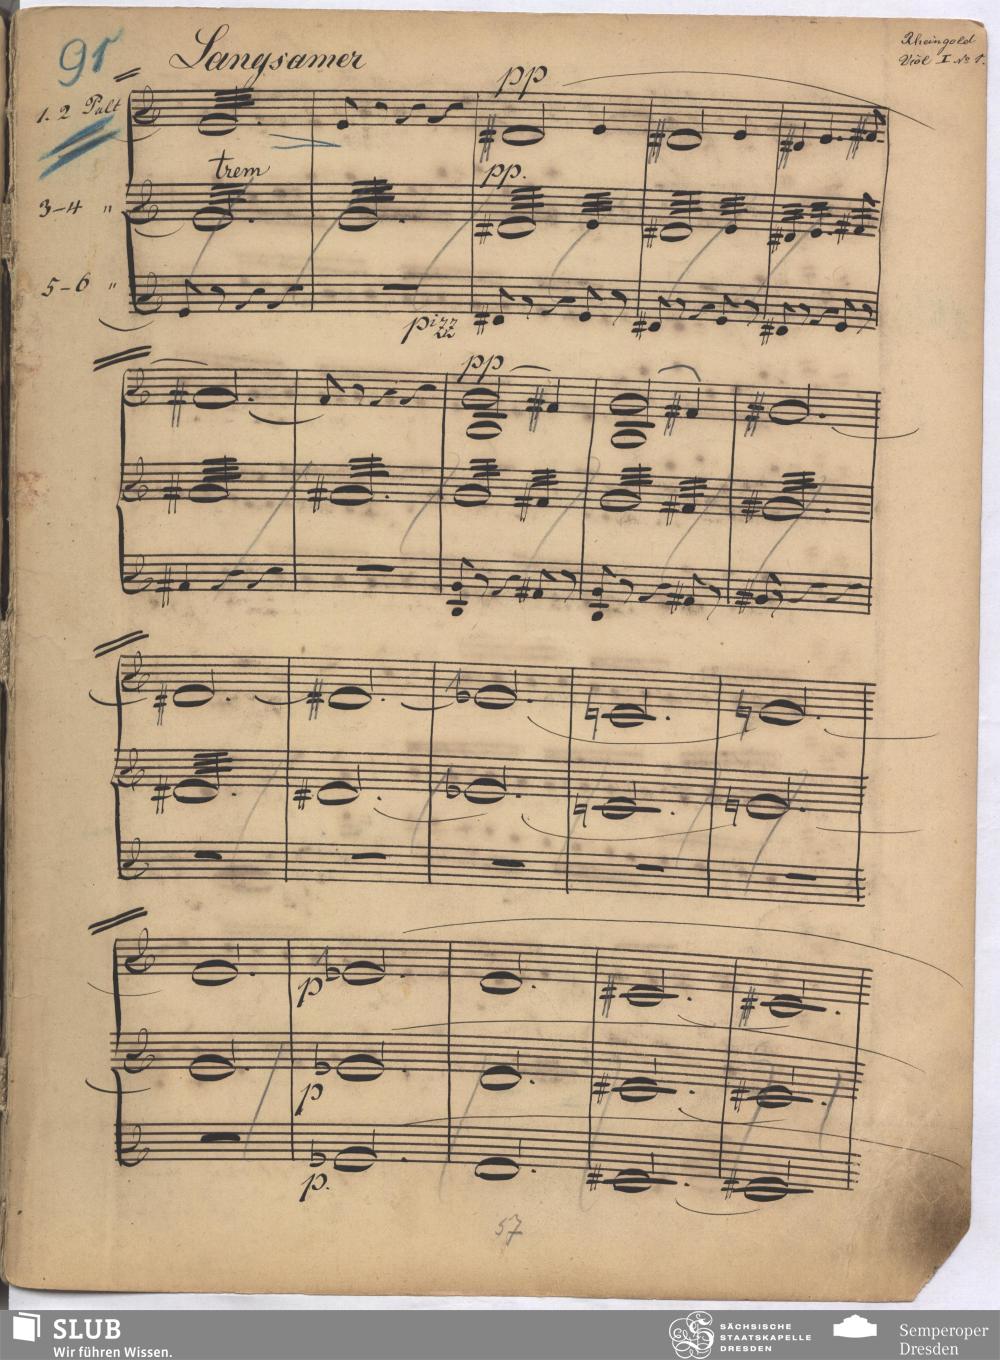 91
Langsamer
Rheingold
Viol I No 1.
pp
1. 2 Pult
trem
pp.
3-4 "
5-6 "
pizz
pp
p
p
p.
57
SLUB
Wir führen Wissen.
SÄCHSISCHE
STAATSKAPELLE
DRESDEN
Semperoper
Dresden